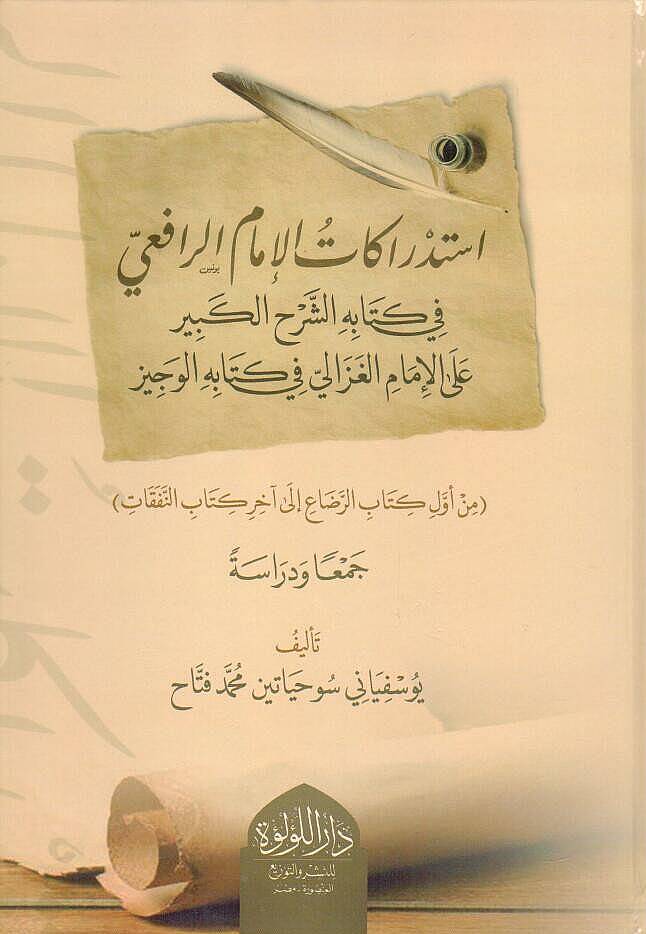 استدْراكاتُ الإمام الرافعيّ
في كتَابِهِ الشَّرْح الكَبِير
عَلَى الإِمَامِ الغَزَاليّ في كتَابِهِ الوَجِيز
(مِنْ أوَّلِ كِتَابِ الرَّضَاعِ إلَى آخِرِ كِتَابِ النَّفَقَاتِ)
جَمْعًا وَدرَاسَةً
تَأليفُ
يُوسْفِيَاني سُوحيَاتين مُحَمَّد فتَّاح
دَارُ اللُؤلُؤَة
للنشر والتوزيع
المنصورة - مصر